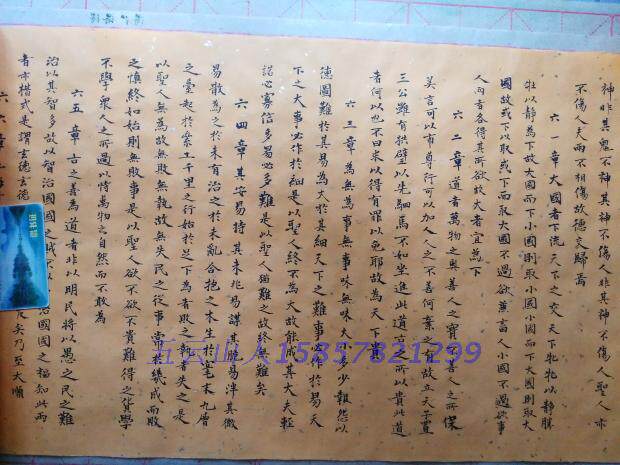 神非其鬼不神其神不傷人非其神不傷人聖人亦
不傷人夫兩不相傷故德交歸焉
六一章大國者下流天下之交天下牝牝以靜勝
牡以靜為下故大國而下小國則取小國小國而下大國則取大
國故或下以取或下而取大國不過欲兼畜人小國不過欲事
人兩者各得其所欲故大者宜為下
六二章道者萬物之奧善人之寶不善人之所保
美言可以市尊行可以加人人之不善何棄之有故立天子置
三公雖有拱璧以先駟馬不如坐進此道古之所以貴此道
者何以也不曰求以得有罪以免耶故為天下貴
六三章為無為事無事味無味大小多少報怨以
德圖難於其易為大於其細天下之難事必作於易天
下之大事必作於細是以聖人終不為大故能成其大夫輕
諾必寡信多易必多難是以聖人猶難之故終無難矣
六四章其安易持其未兆易謀其脆易泮其微
易散為之於未有治之於未亂合抱之木生於毫末九層
之臺起於累土千里之行始於足下為者敗之執者失之是
以聖人無為故無敗無執故無失民之從事常於幾成而敗
之慎終如始則無敗事是以聖人欲不欲不貴難得之貨學
不學衆人之所過以恃萬物之自然而不敢為
六五章古之善為道者非以明民將以愚之民之難
治以其智多故以智治國國之賊不以治國國之福知此兩
者亦楷式是謂玄德玄德矣乃至大順
五云山人15857821299